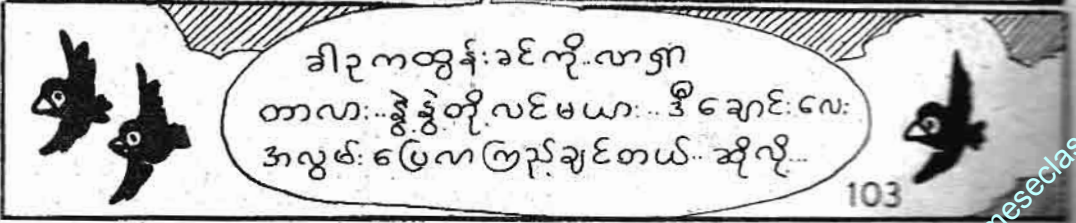 ဒါဥကထွန်းခင်ကို..လာရှာ
တာလား..နွဲ့နွဲ့တို့လင်မယား..ဒီချောင်းလေး
အလွမ်းပြေလာကြည့်ချင်တယ်..ဆိုလို့...
103
neseclas